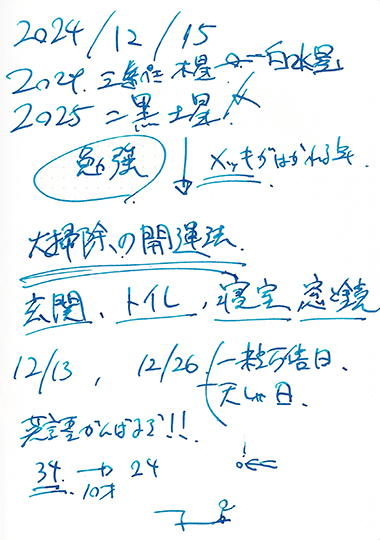 2024/12/15
2024. 三碧 木星 ← 一白水星
2025 二黒土星
勉強 ↓ メッキがはがれる年.
大掃除の開運法.
玄関、トイレ、寝室、窓と鏡
12/13 , 12/26. 一粒万倍日.
天しゃ日.
英語がんばるぞ!!
34 → 24
10才